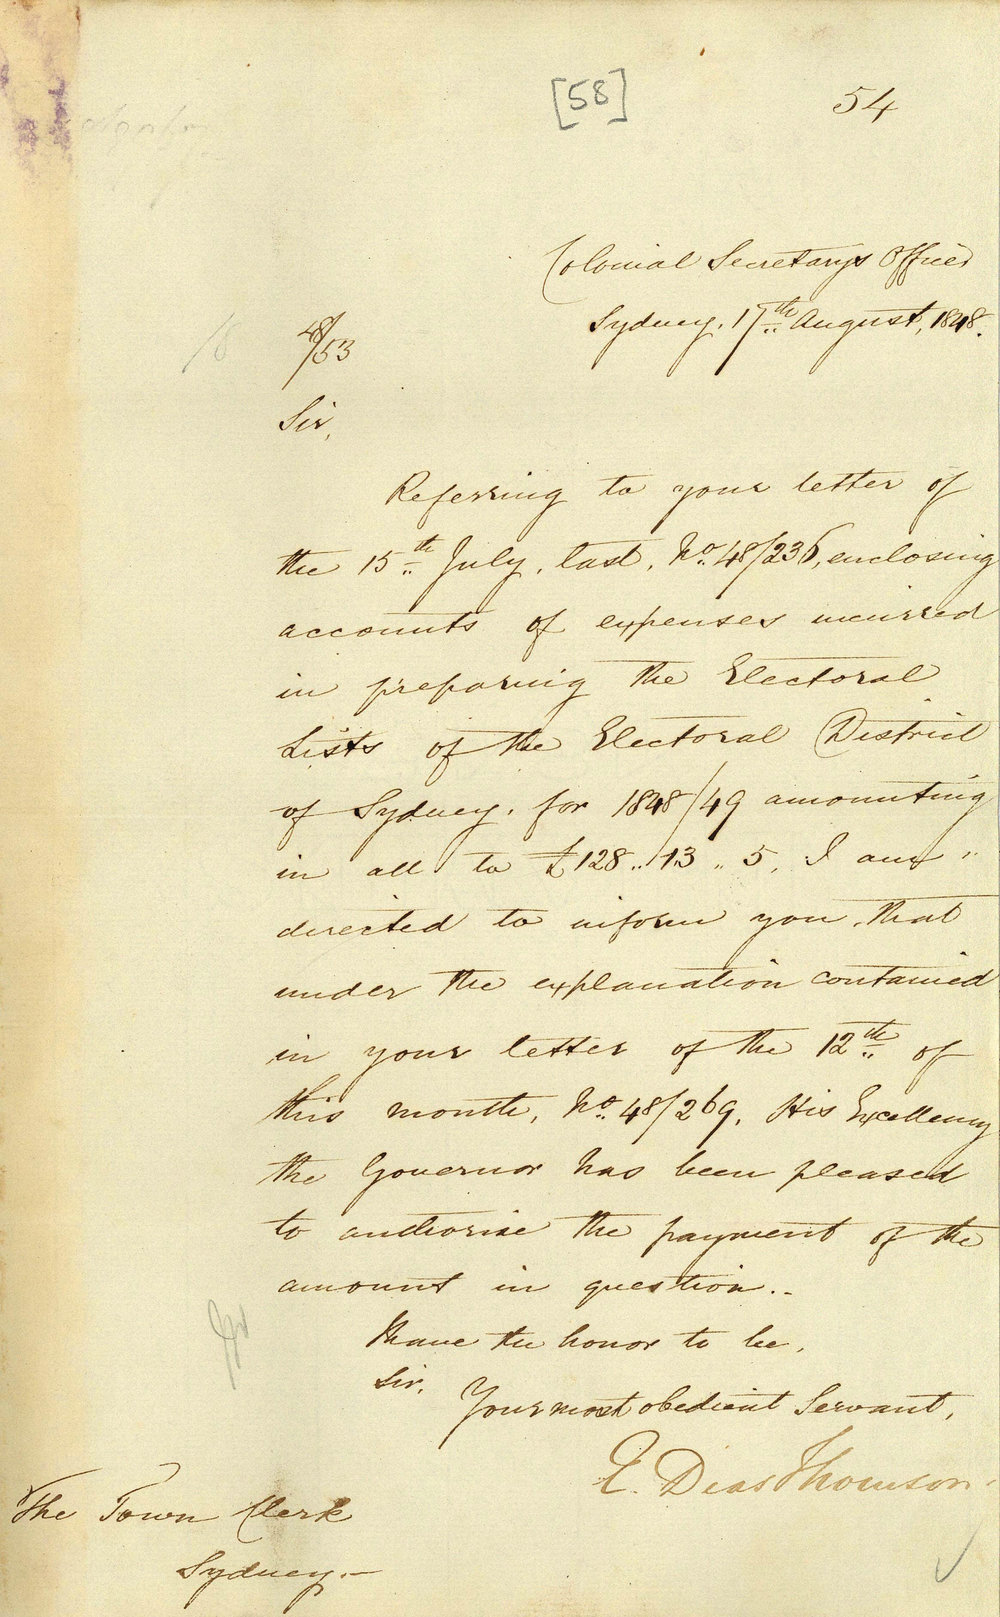 [58]
54
Colonial Secretary's Office
Sydney, 17th August, 1848.
48/53
Sir,
Referring to your letter of
the 15th July, last, No. 48/236, enclosing
accounts of expenses incurred
in preparing the Electoral
Lists of the Electoral District
of Sydney, for 1848/49 amounting
in all to £128..13..5, I am
directed to inform you, that
under the explanation contained
in your letter of the 12th of
this month, No. 48/269, His Excellency
the Governor has been pleased
to authorise the payment of the
amount in question..
I have the honor to be,
Sir,
Your most obedient Servant,
E. Deas Thomson.
The Town Clerk
Sydney.